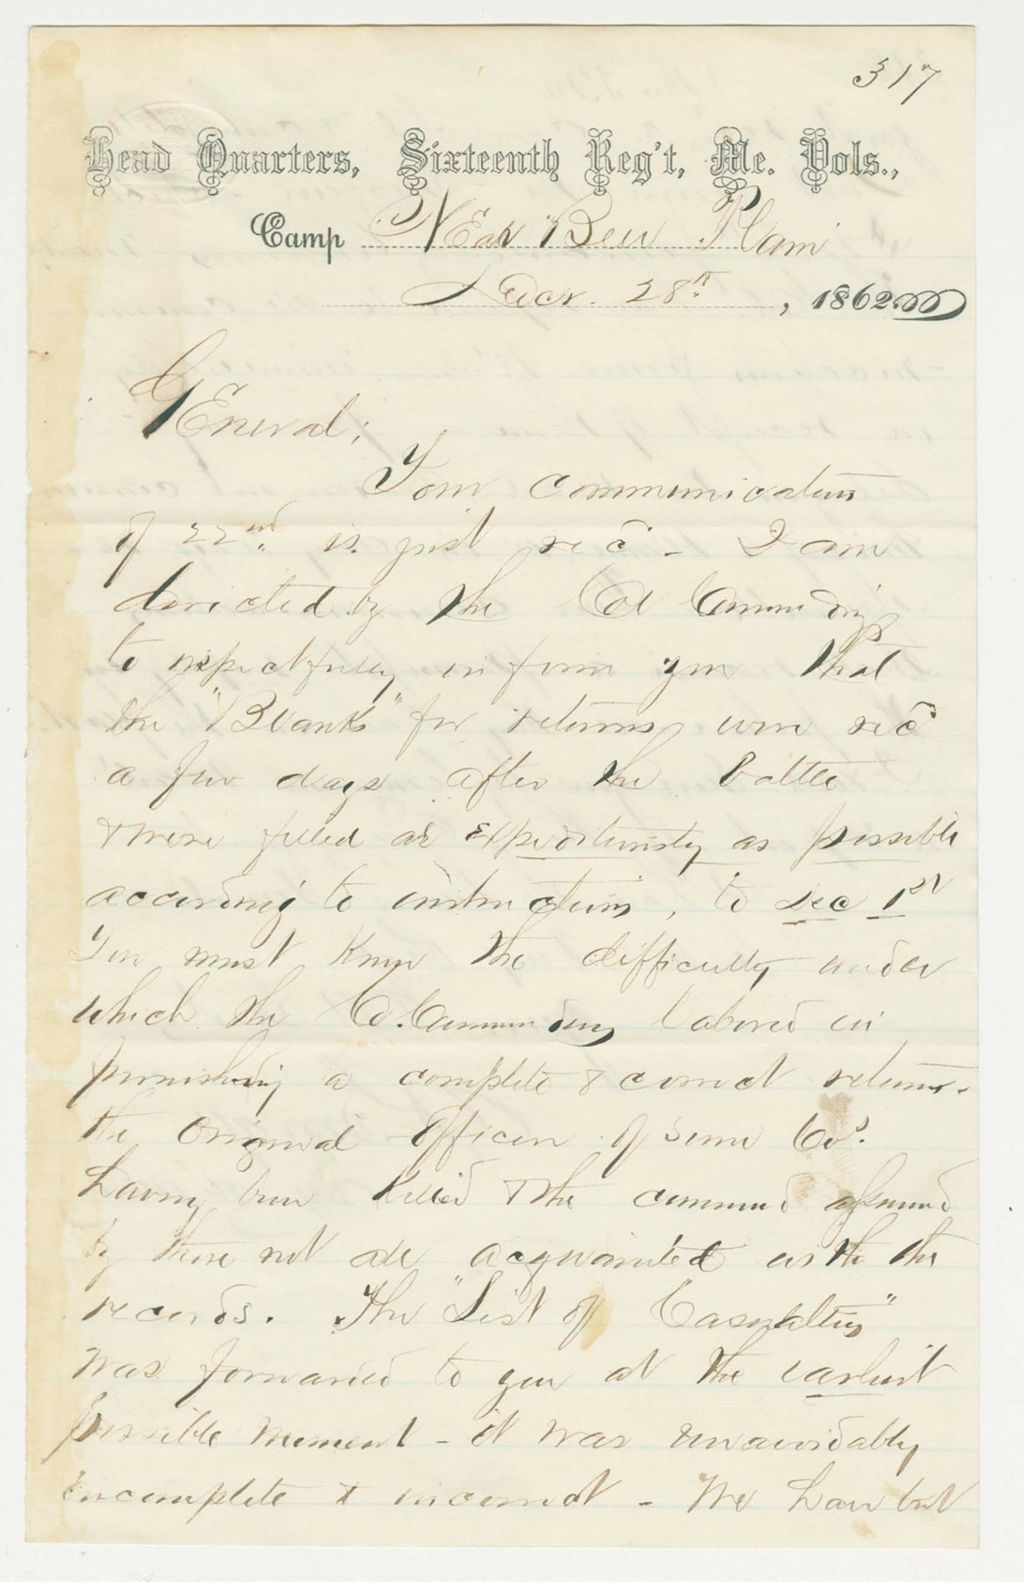 317
Head Quarters, Sixteenth Reg't, Me. Vols.,
Camp Near Bell Plain
Decr. 28th, 1862
General;
Your communication
of 22nd. is just rec'd - I am
directed by the Col Commnding
to respectfully inform you that
the "Blanks" for returns were rec'd
a few days after the battle
& were filled as expeditiously as possible
according to instructions, to Dec 1st
You must know the difficulty under
which the Col. Commnding labored in
furnishing a complete & correct return.
the original officers of some Cos.
having been killed & the command assumed
by those not all acquainted with the
records. The "List of Casualties"
was forwarded to you at the earliest
possible moment - it was unavoidably
incomplete & incorrect - We have but